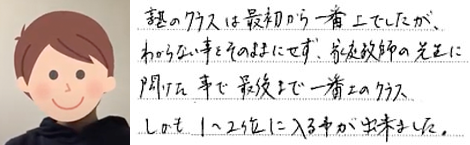 塾のクラスは最初から一番上でしたが、
わからない事をそのままにせず、家庭教師の先生に
聞けた事で最後まで一番上のクラス
しかも1〜2位に入る事が出来ました。